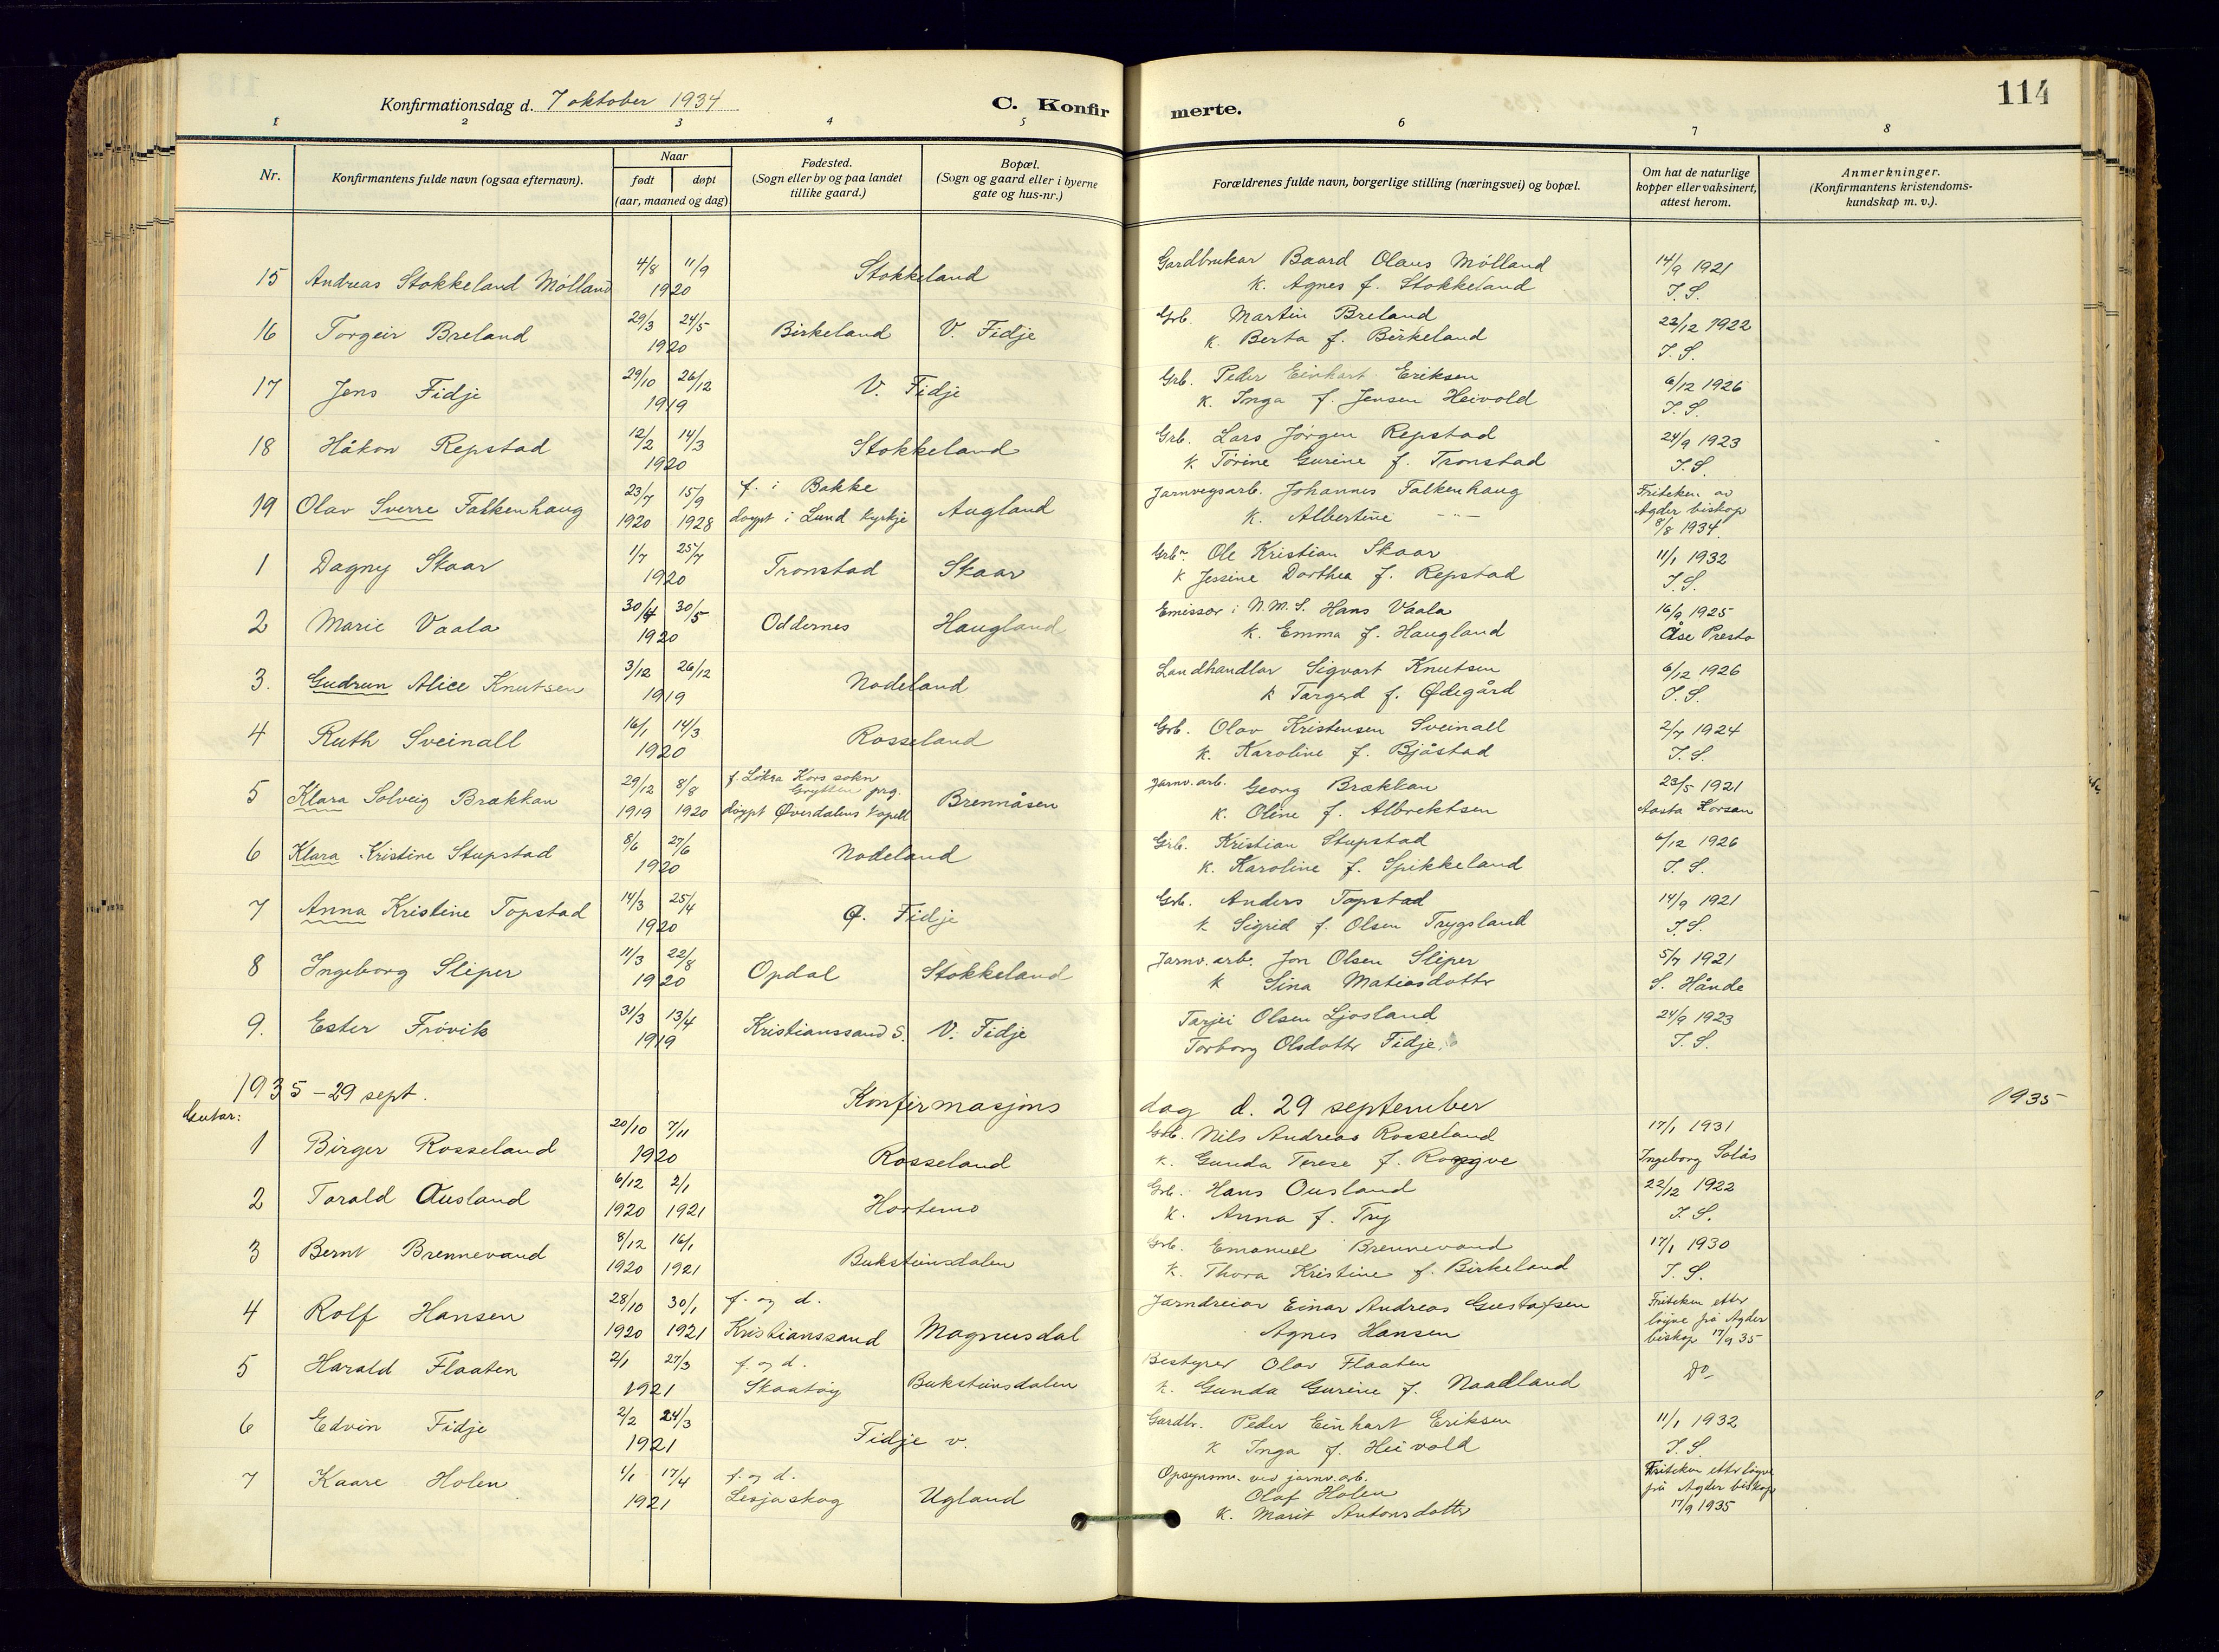 114
Konfirmationsdag d. 7 oktober 1934
C. Konfirmerte.
1 2 3 4 5 6 7 8
Nr.
Konfirmantens fulde navn (ogsaa efternavn).
Naar
født døpt
(aar, maaned og dag)
Fødested.
(Sogn eller by og paa landet
tillike gaard.)
Bopæl.
(Sogn og gaard eller i byerne
gate og hus-nr.)
Forældrenes fulde navn, borgerlige stilling (næringsvei) og bopæl.
Om hat de naturlige
kopper eller vaksinert,
attest herom.
Anmerkninger.
(Konfirmantens kristendoms-
kundskap m. v.).
15 Andreas Stokkeland Mølland 4/8 11/9 1920 Stokkeland
Gardbrukar Baard Olaus Mølland 14/9 1921
K. Agnes f. Stokkeland J. S.
16 Torgeir Breland 29/3 24/5 1920 Birkeland V. Fidje
Grb. Martin Breland 22/12 1922
K. Berta f. Birkeland J. S.
17 Jens Fidje 29/10 26/12 1919 V. Fidje
Grb. Peder Einhart Eriksen 6/12 1926
K. Inga f. Jensen Heivold J. S.
18 Håkon Repstad 12/2 14/3 1920 Stokkeland
Grb. Lars Jørgen Repstad 24/9 1923
K. Tørine Gurine f. Tronstad J. S.
19 Olav Sverre Falkenhaug 23/7 1920 15/9 1928 f. i Bakke døypt i Lund kyrkje Augland
Jarnvegsarb. Johannes Falkenhaug Friteken av
K. Albertine -"- Agder biskop
8/8 1934.
1 Dagny Skaar 1/7 25/7 1920 Tronstad Skaar
Grb. Ole Kristian Skaar 11/1 1932
K Jessine Dorthea f. Repstad J. S.
2 Marie Vaala 30/4 30/5 1920 Oddernes Haugland
Emissær i N. M. S. Hans Vaala 16/9 1925
K. Emma f. Haugland Åse Presto
3. Gudrun Alice Knutsen 3/12 26/12 1919 Nodeland
Landhandlar Sigvart Knutsen 6/12 1926
K Targerd f. Ødegård J. S.
4 Ruth Sveinall 16/1 14/3 1920 Rosseland
Grb. Olav Kristensen Sveinall 2/7 1924
K. Karoline f. Bjåstad J. S.
5 Klara Solveig Brækkan 29/12 1919 8/8 1920 f. Løkra Kors sokn Grytten prg. døypt Øverdalens kapell Brennåsen
Jarnv. arb. Georg Brækkan 23/5 1921
K. Oline f. Albrektsen Aasta Korsan
6 Klara Kristine Stupstad 8/6 27/6 1920 Nodeland
Grb. Kristian Stupstad 6/12 1926
K. Karoline f. Spikkeland J. S.
7 Anna Kristine Topstad 14/3 25/4 1920 Ø. Fidje
Grb. Anders Topstad 14/9 1921
K Sigrid f. Olsen Trygsland J. S.
8 Ingeborg Sliper 11/3 22/8 1920 Opdal Stokkeland
Jarnv. arb. Jon Olsen Sliper 5/7 1921
K Sina Matiasdotter S. Hånde
9. Ester Frøvik 31/3 13/4 1919 Kristianssand S. V. Fidje
Tarjei Olsen Ljosland 24/9 1923
Torborg Olsdotter Fidje. J. S.
1935 - 29 sept. Konfirmasjonsdag d. 29 september 1935
Gutar:
1 Birger Rosseland 20/10 7/11 1920 Rosseland
Grb. Nils Andreas Rosseland 17/1 1931
K. Gunda Terese f. Ingeborg Solås
2 Torald Ausland 6/12 1920 2/1 1921 Hortemo
Grb. Hans Ousland 22/12 1922
K. Anna f. Try J. S.
3 Bernt Brennevand 8/12 1920 16/1 1921 Buksteinsdalen
Grb. Emanuel Brennevand 17/1 1930
K. Thora Kristine f. Birkeland J. S.
4 Rolf Hansen 28/10 1920 30/1 1921 f. og d. Kristianssand Magnusdal
Jarndreiar Einar Andreas Gustafsen Friteken etter
Agnes Hansen løyve frå Agder
biskop 17/9 35
5 Harald Flaaten 2/1 27/3 1921 f. og d. Skaatøy Buksteinsdalen
Bestyrer Olav Flaaten Do
K. Gunda Gurine f. Naadland
6 Edvin Fidje 2/2 24/3 1921 Fidje v.
Gardbr. Peder Einhart Eriksen 11/1 1932
K Inga f. Heivold J. S
7 Kaare Holen 1/1 17/4 1921 f. og d. Lesjaskog Ugland
Opsynsm. ved jarnv. arb. Friteken etter løyve
Olaf Holen frå Agder biskop
K. Marit Antonsdotter 17/9 1935